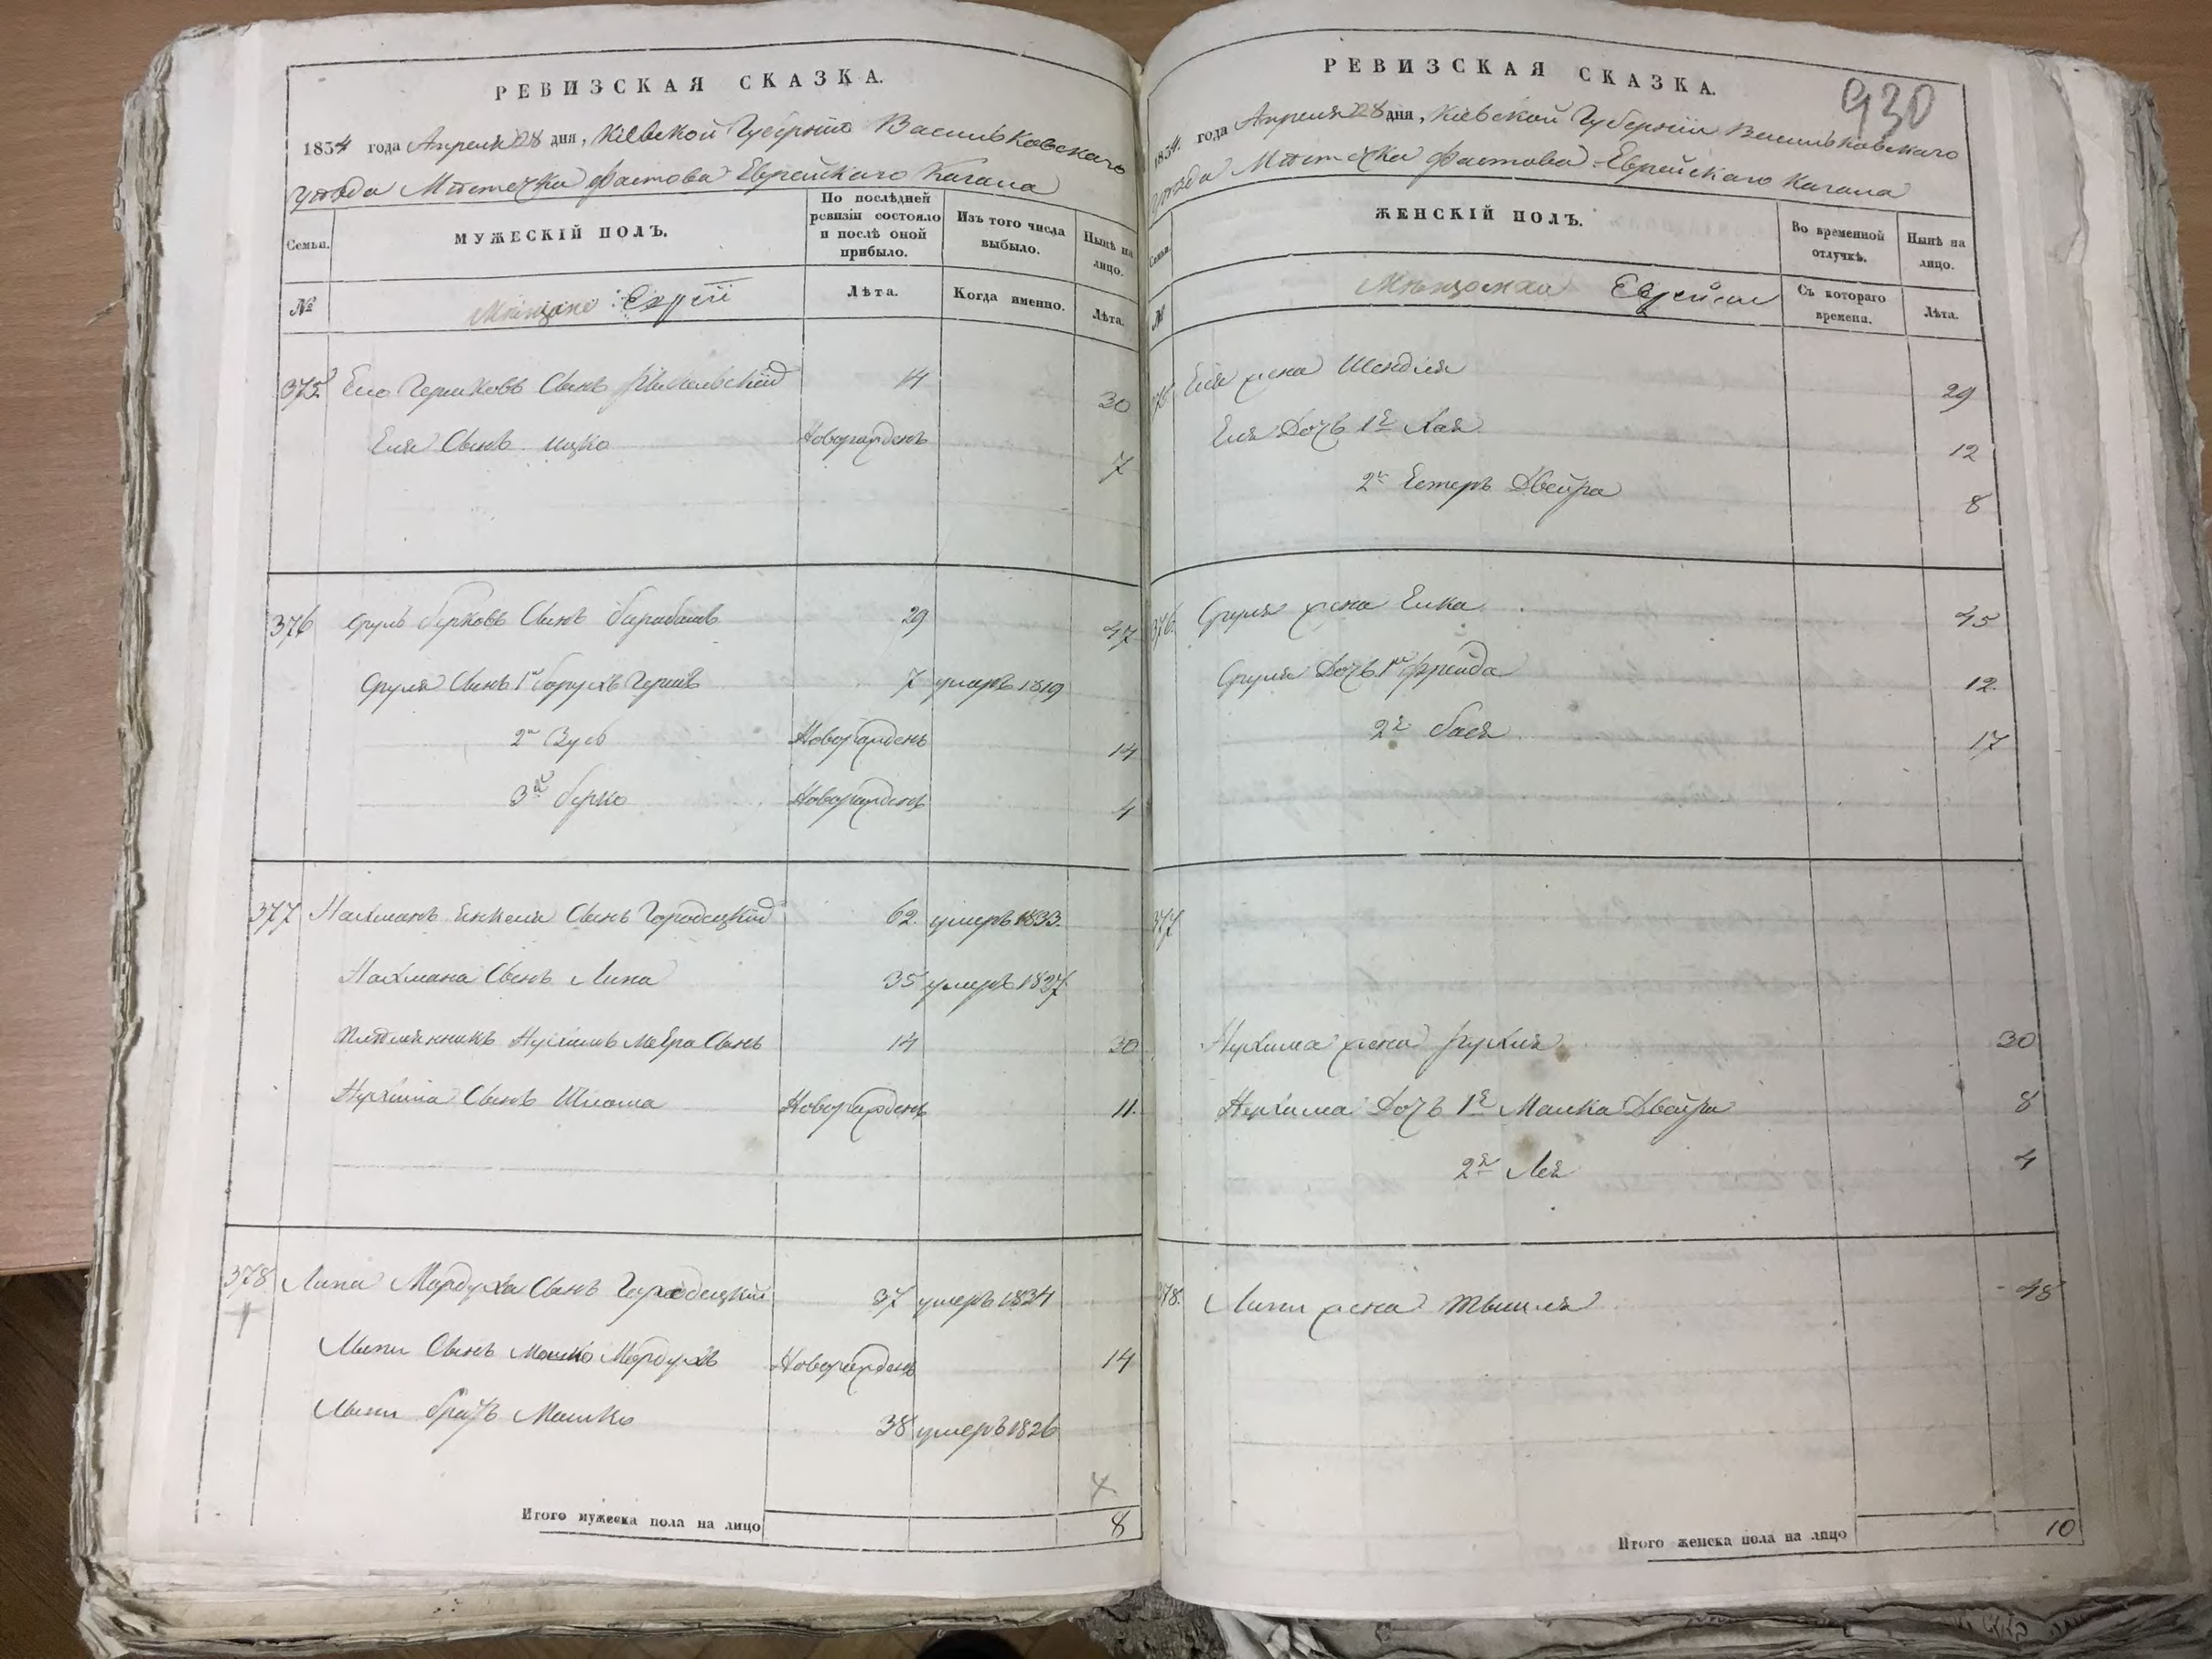 РЕВИЗСКАЯ СКАЗКА.
1834 года Апреля 28 дня, Кіевской Губерніи Васильковскаго
уѣзда Мѣстечка Фастова Еврейскаго Кагала
Семьи.
МУЖЕСКІЙ ПОЛЪ.
По послѣдней ревизіи состояло и послѣ оной прибыло.
Изъ того числа выбыло.
Нынѣ на лицо.
№
Мѣщане Евреи
Лѣта.
Когда именно.
Лѣта.
375 Ело Гершковъ Сынъ 14 30
Еля Сынъ Ицко Новорожденъ 7
376 Сруль Берковъ Сынъ 29 47
Сруля Сынъ 1й Борухъ Гершъ 7 умеръ 1819
2й Зусь Новорожденъ 14
3й Берко Новорожденъ 4
377 Нахманъ Янкеля Сынъ Городецкій 62 умеръ 1833.
Нахмана Сынъ Липа 35 умеръ 1827
Племянникъ Нухимъ Меера Сынъ 14 30
Нухима Сынъ Шлома Новорожденъ 11.
378 Липа Мордуха Сынъ Городецкій 37 умеръ 1834
Липы Сынъ Мошко Мордухъ Новорожденъ 14
Липы братъ Мошко 38 умеръ 1826
Итого мужеска пола на лицо 8
930
РЕВИЗСКАЯ СКАЗКА.
1834 года Апреля 28 дня, Кіевской Губерніи Васильковскаго
уѣзда Мѣстечка Фастова Еврейскаго Кагала
Семьи.
ЖЕНСКІЙ ПОЛЪ.
Во временной отлучкѣ.
Нынѣ на лицо.
№
Мѣщанки Еврейки
Съ котораго времени.
Лѣта.
375 Еля жена Шендля 29
Еля Дочь 1я Хая 12
2я Естеръ Двейра 8
376. Сруля жена Елка 45
Сруля Дочь 1я Фрейда 12.
2я Бася 17
377
Нухима жена Рухля 30
Нухима Дочь 1я Малка Двейра 8
2я Лея 4
378. Липи жена 48
Итого женска пола на лицо 10